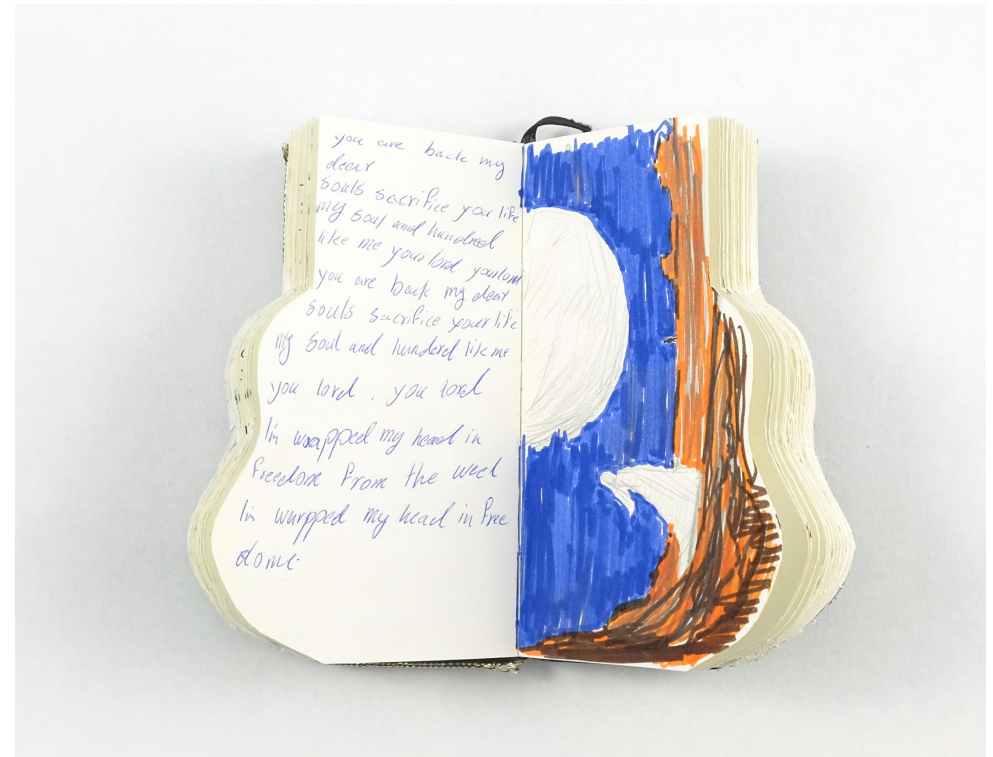 you are back my
dear
souls sacrifice you life
my soul and hundred
like me your lord your lord
you are back my dear
souls sacrifice your life
my soul and hundered like me
you lord , you lord
I'm wrapped my head in
freedom from the weel
I'm wurpped my head in free
dome.